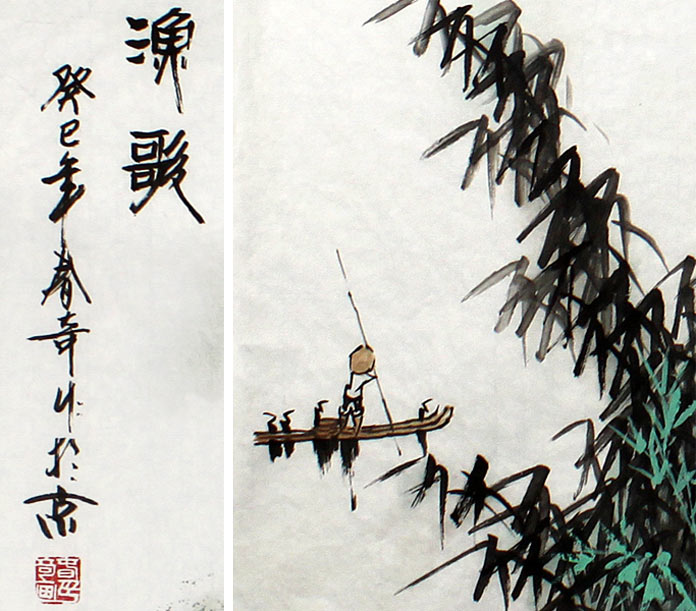 漁歌
癸巳年春奇作於京